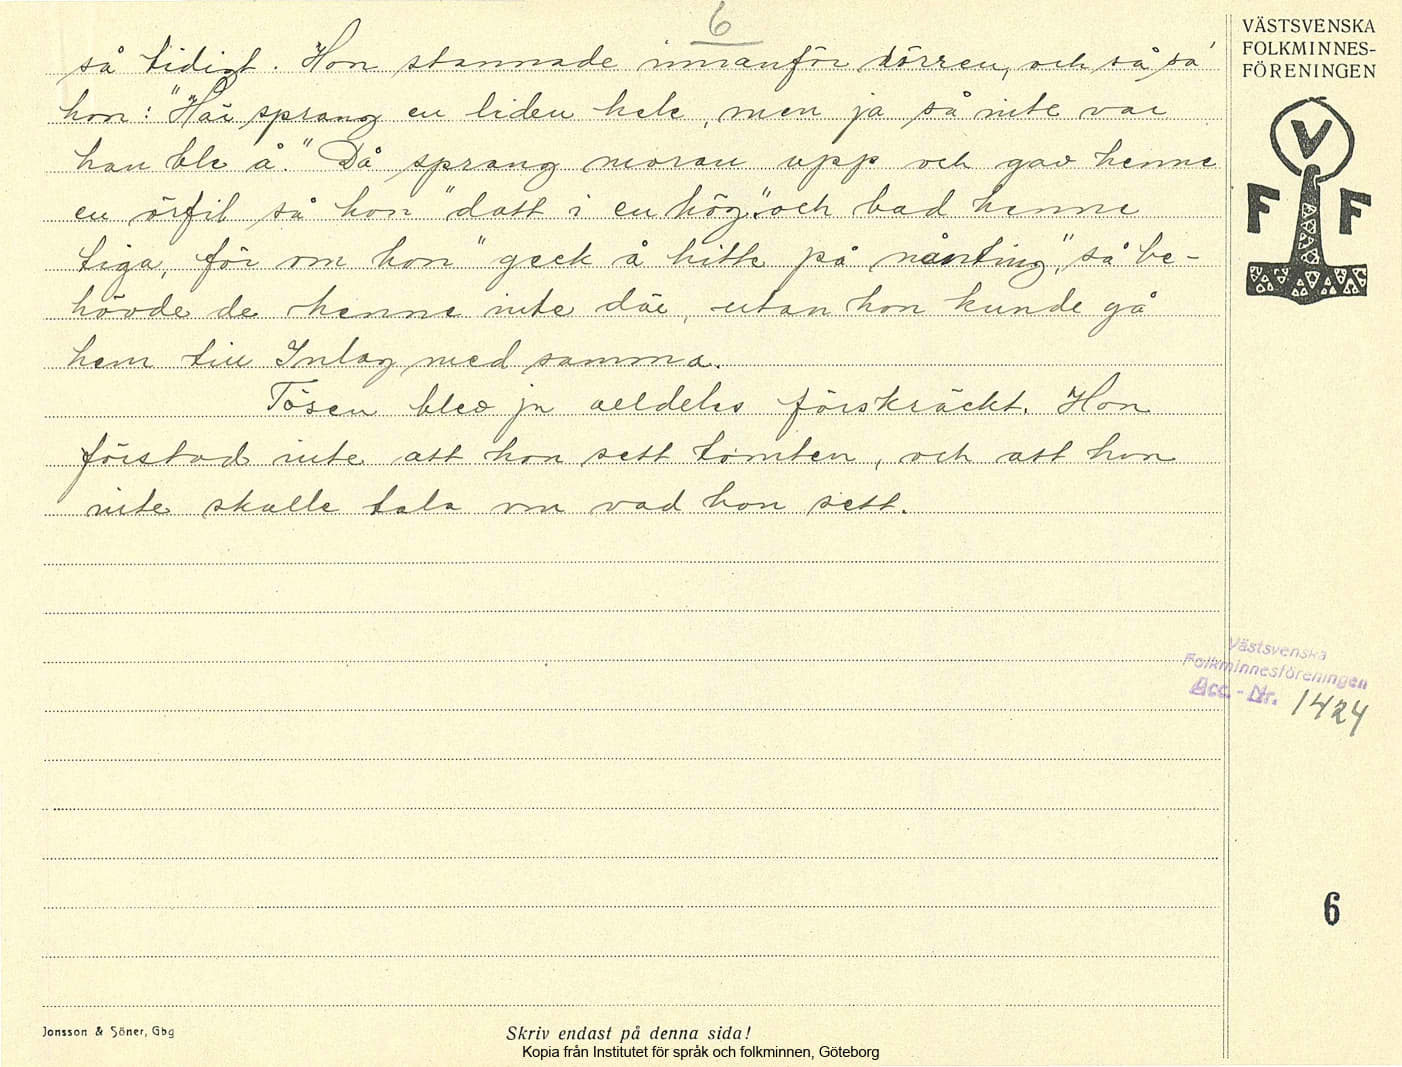 6
så tidigt. Hon stannade innanför dörren, och så sa'
hon: "Här sprang en liden kele, men ja så inte var
han ble å." Då sprang moran upp och gav henne
en örfil så hon "datt i en hög", och bad henne
tiga, för om hon "geck å hitte på nånting", så be-
hövde de henne inte där, utan hon kunde gå
hem till Inlag med samma.
Tösen blev ju alldeles förskräckt. Hon
förstod inte att hon sett tomten, och att hon
inte skulle tala om vad hon sett.
VÄSTSVENSKA
FOLKMINNES-
FÖRENINGEN
V
F F
Västsvenska
Folkminnesföreningen
Acc.-Nr. 1424
6
Jonsson & Söner, Gbg
Skriv endast på denna sida!
Kopia från Institutet för språk och folkminnen, Göteborg